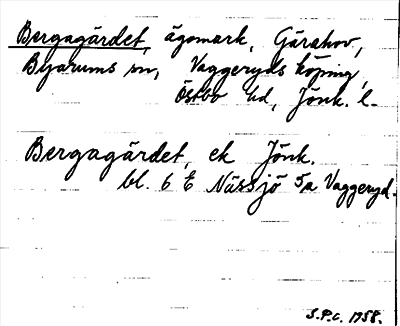 Bergagärdet, ägomark, Gärahov,
Byarums sn, Vaggeryds köping,
Östbo hd, Jönk. l.
Bergagärdet, ek Jönk.
bl. 6 E Nässjö 5a Vaggeryd.
S.P.C. 1958.